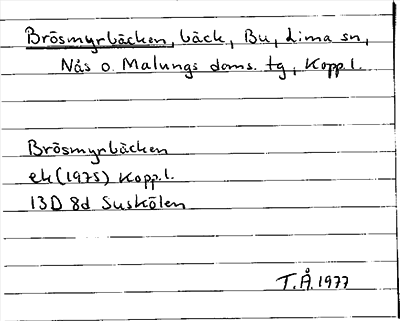 Brösmyrbäcken, bäck, Bu, Lima sn,
Nås o. Malungs doms. tg, Kopp.l.
Brösmyrbäcken
ek (1975) Kopp.l.
13D 8d Suskölen
T.Å. 1977